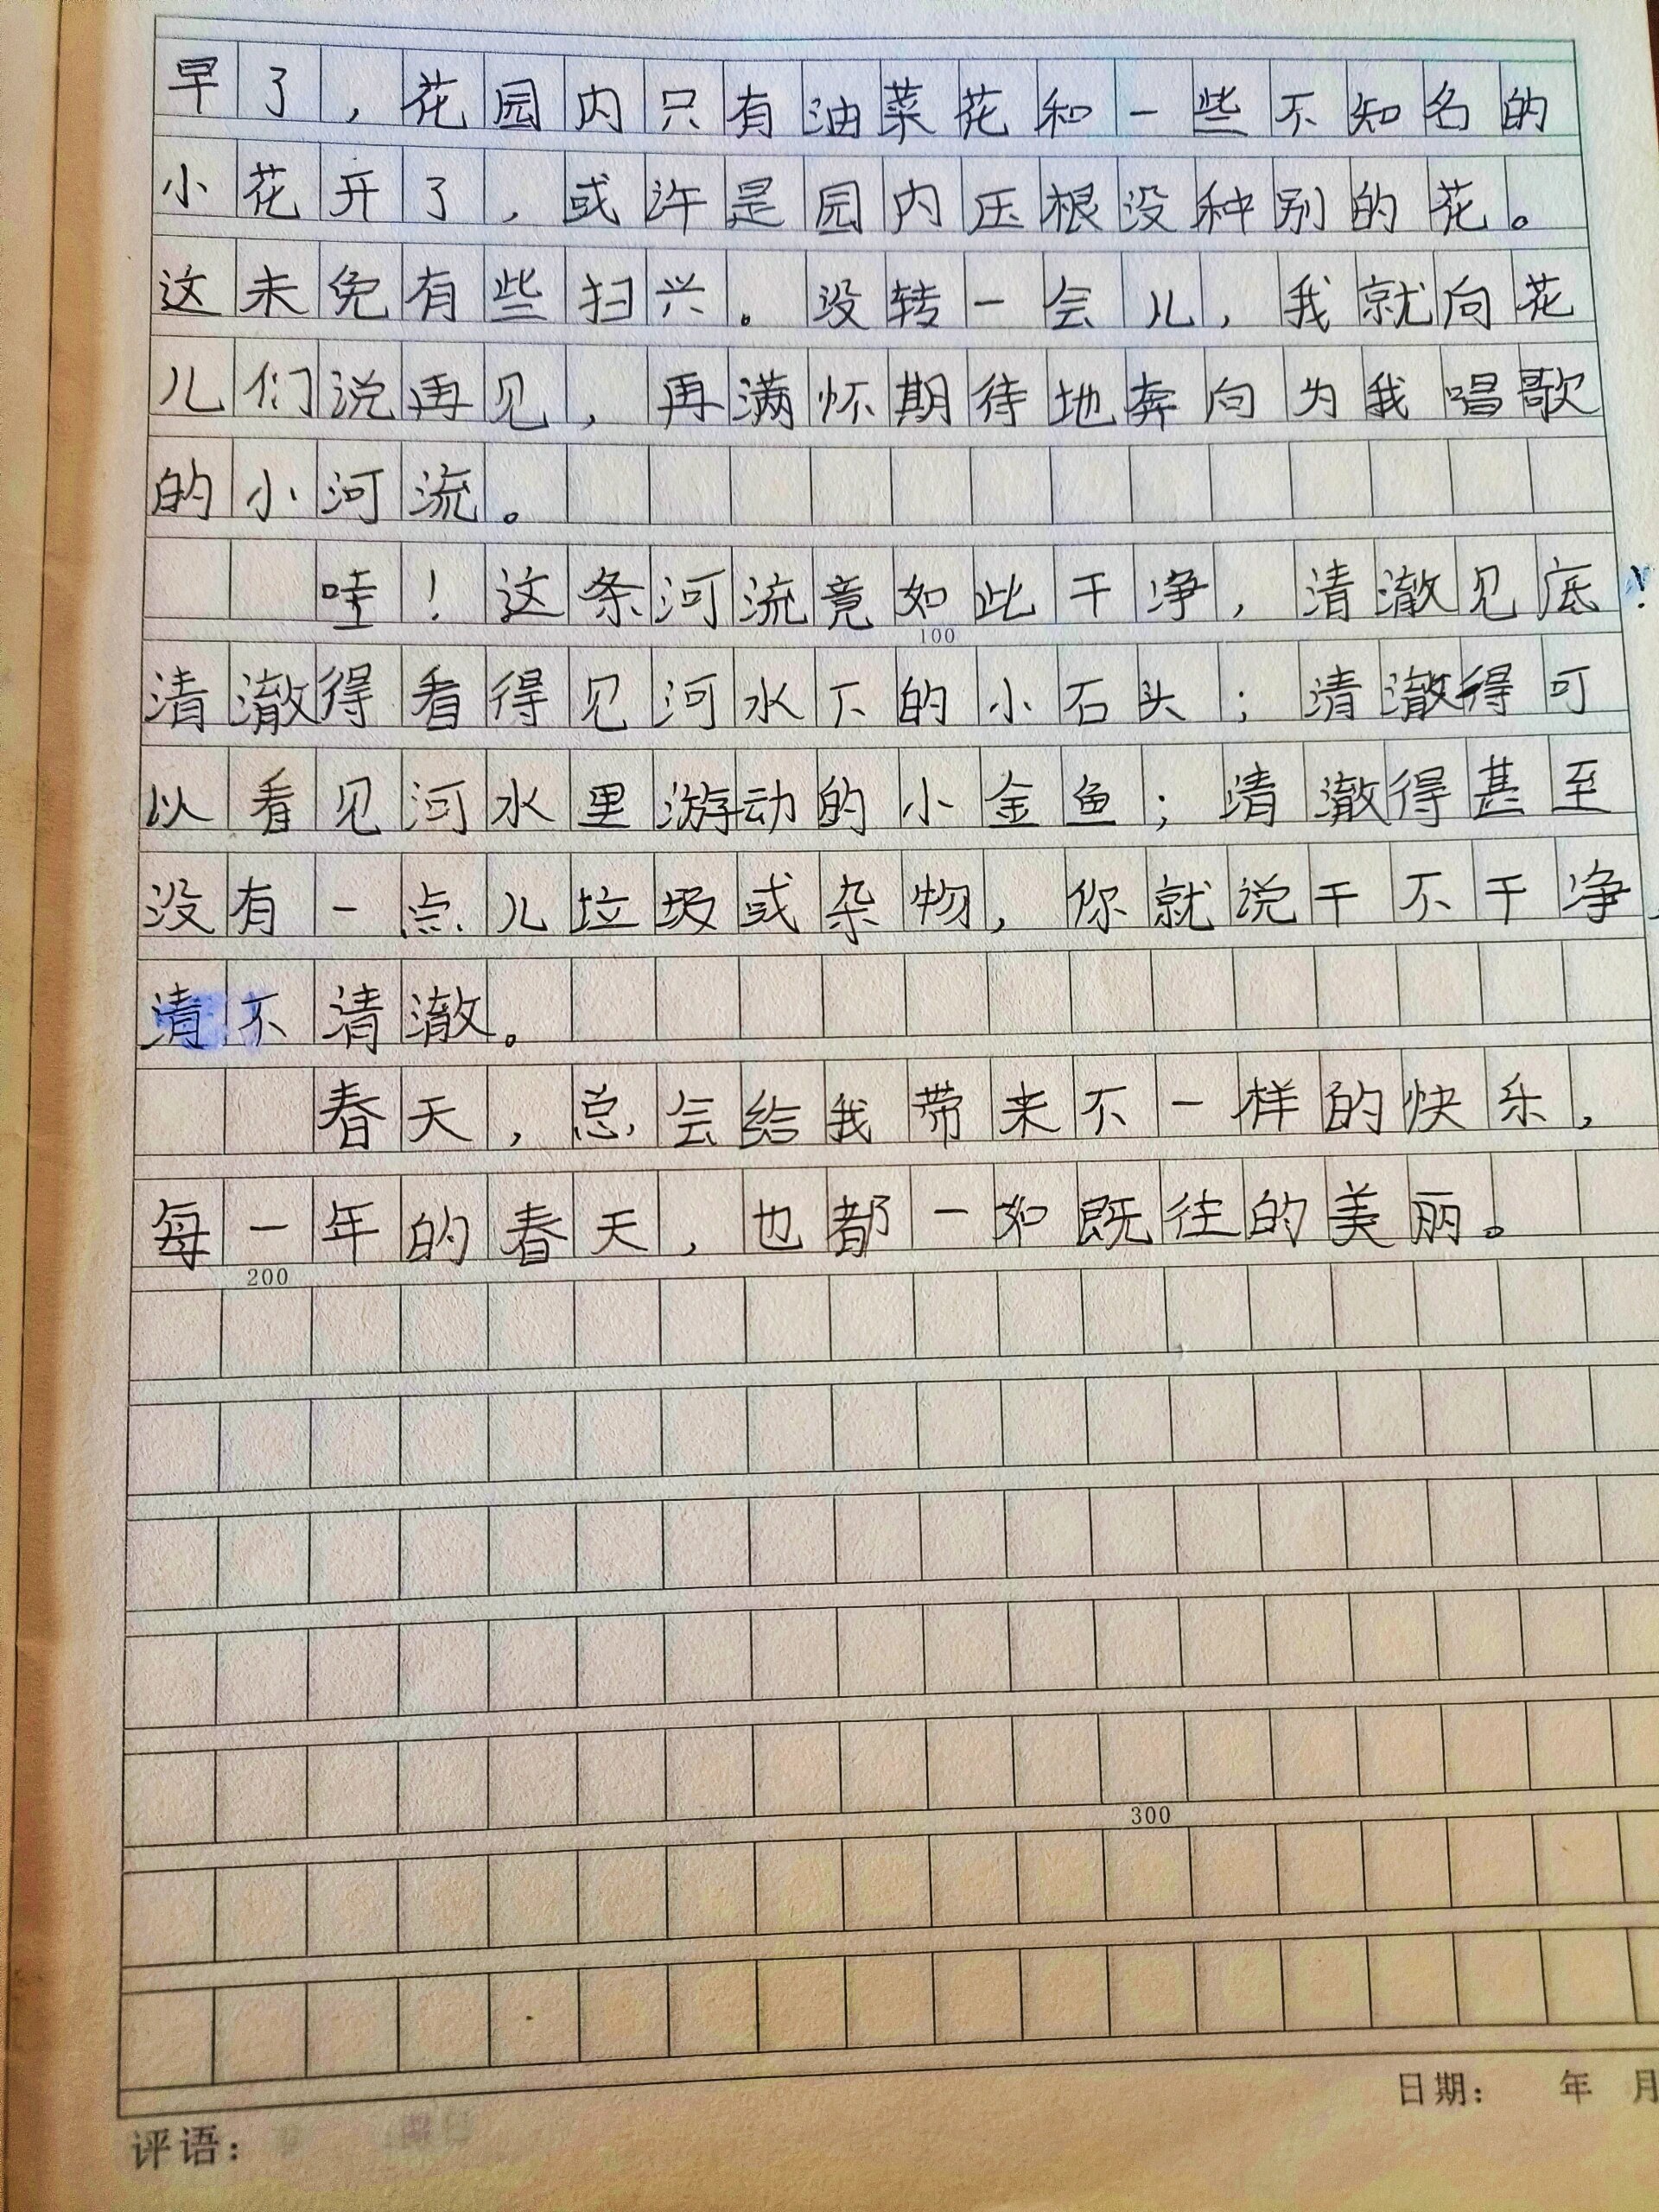 早了，花园内只有油菜花和一些不知名的
小花开了，或许是园内压根没种别的花。
这未免有些扫兴。没转一会儿，我就向花
儿们说再见，再满怀期待地奔向为我唱歌
的小河流。
哇！这条河流竟如此干净，清澈见底！
100
清澈得看得见河水下的小石头；清澈得可
以看见河水里游动的小金鱼；清澈得甚至
没有一点儿垃圾或杂物，你就说干不干净，
清不清澈。
春天，总会给我带来不一样的快乐，
每一年的春天，也都一如既往的美丽。
200
300
日期： 年 月
评语：